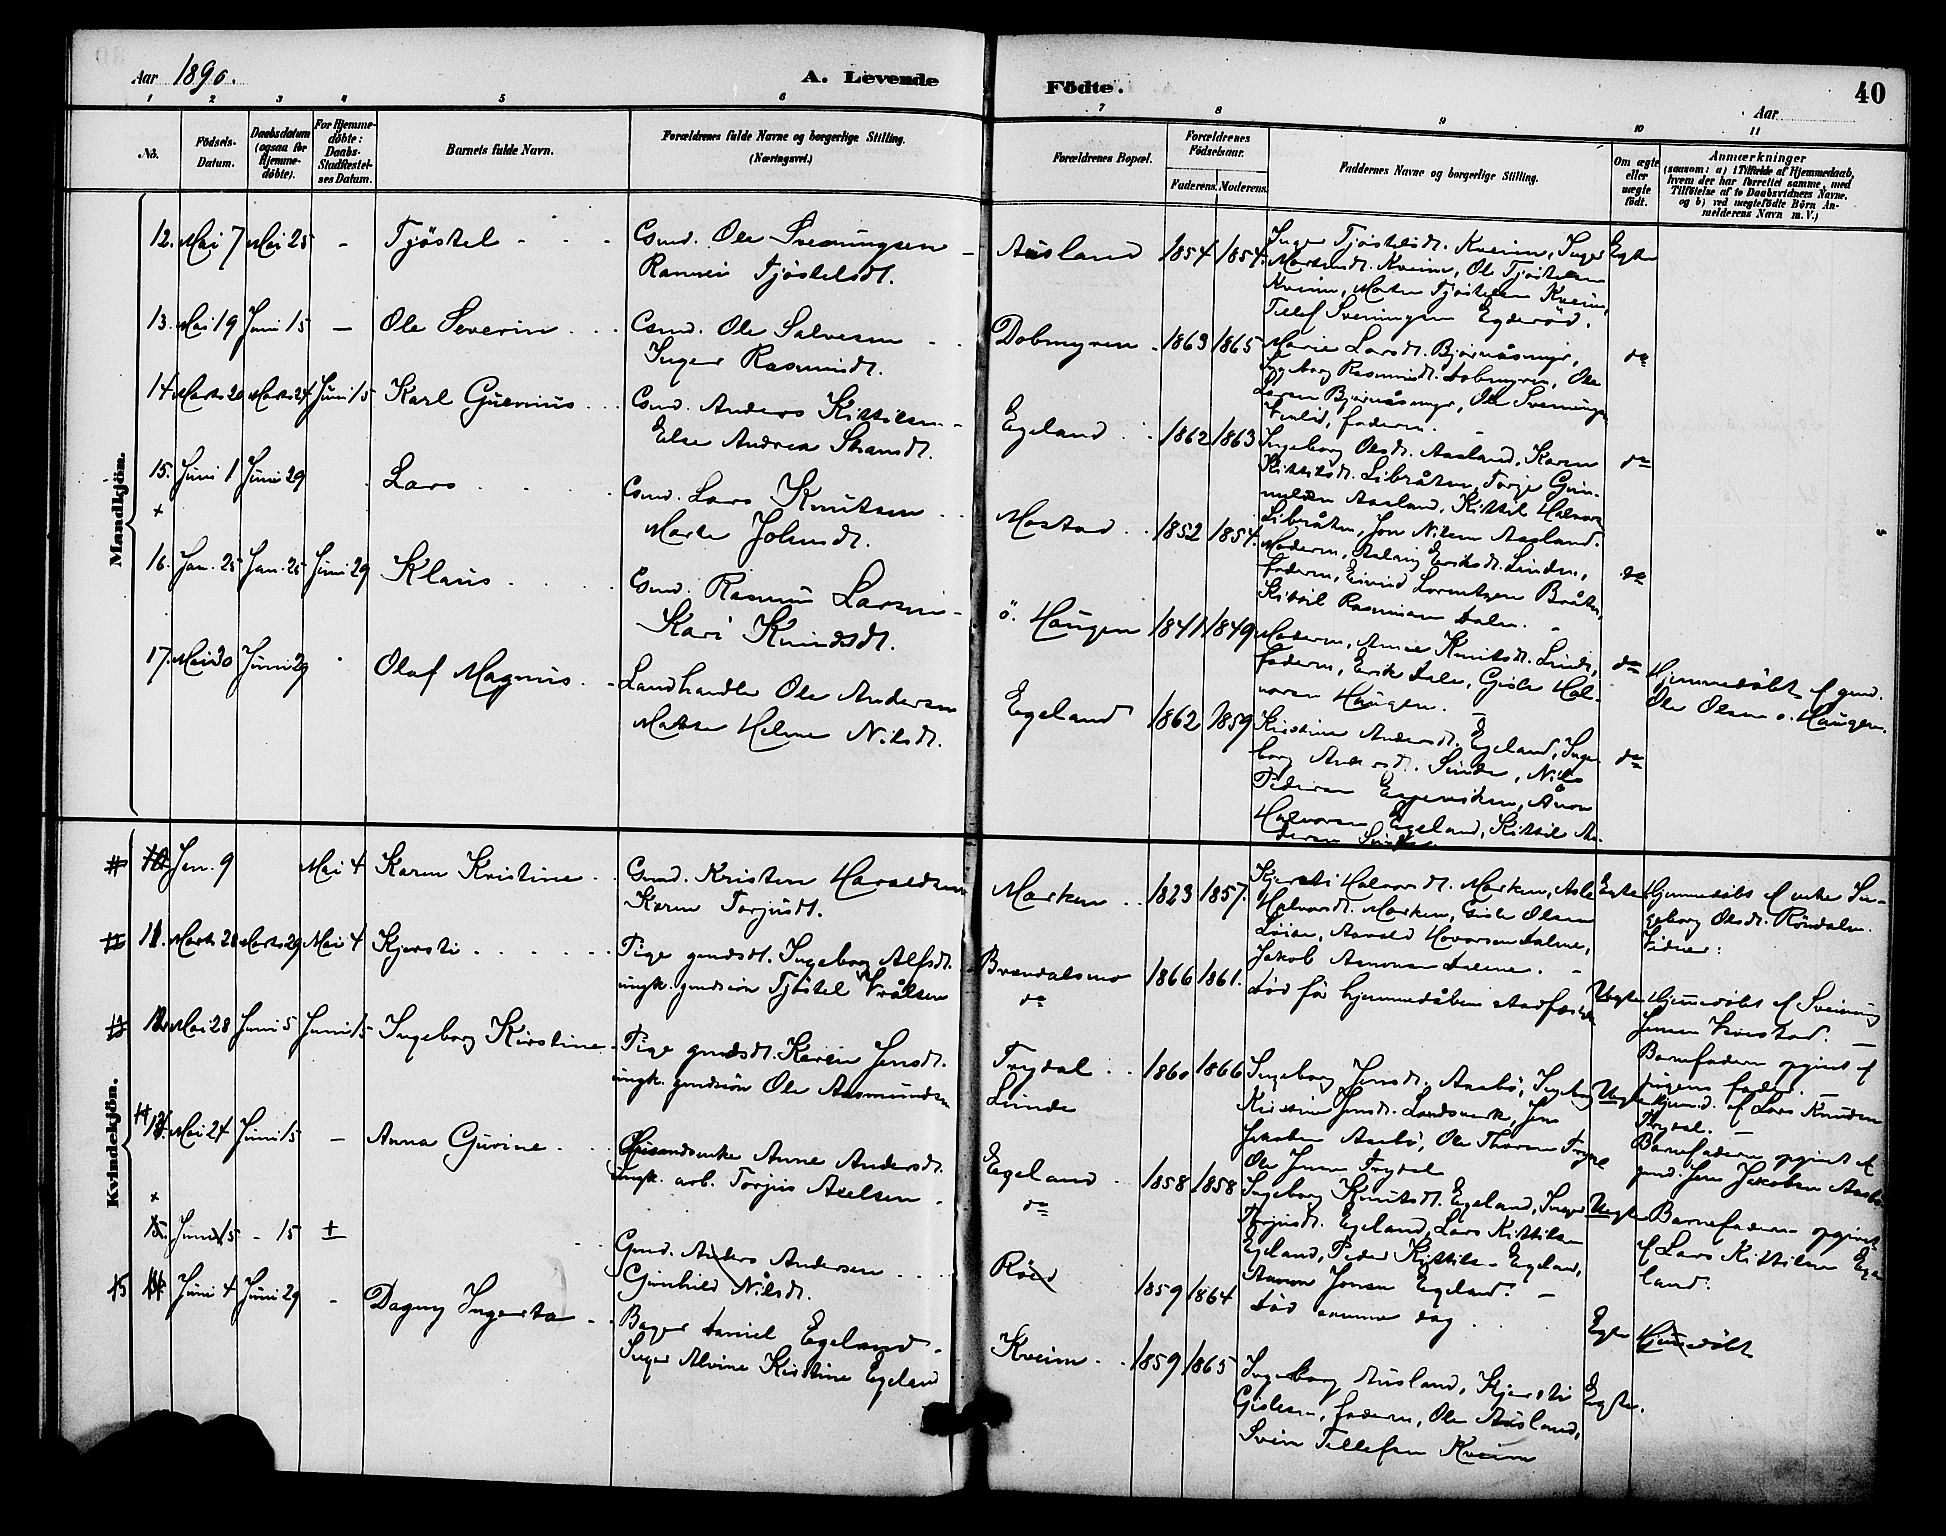 Aar 1890.
A. Levende
Födte.
40
Aar
1 2 3 4 5 6 7 8 9 10 11
No.
Födsels-Datum.
Daabsdatum (ogsaa for Hjemme-döbte).
For Hjemme-döbte: Daabs-Stadfæstel-ses Datum.
Barnets fulde Navn.
Forældrenes fulde Navne og borgerlige Stilling. (Næringsvei.)
Forældrenes Bopæl.
Forældrenes Födselsaar.
Faderens. Moderens.
Faddernes Navne og borgerlige Stilling.
Om ægte eller uægte födt.
Anmærkninger
(saasom: a) i Tilfælde af Hjemmedaab,
hvem der har forrettet samme, med
Tilföielse af to Daabsvidners Navne,
og b) ved uægtefödte Börn An-
melderens Navn m. V.)
Mandkjön.
12. Mai 7 Mai 25 - Tjöstel
Gmd. Ole Sveinungsen
Rannei Tjöstelsdt.
Ausland 1854 1854.
Inger Tjöstelsdt. Kveim, Inger
Kveim, Ole Tjöstelsen
Kveim, Tjöstelsen Kveim,
Tellef Sveinungsen Egderöd.
Egte
13. Mai 19 Juni 15 - Ole Severin
Gmd. Ole Salvesen
Inger Rasmusdt.
Dobmyren 1863 1865
Marie Larsdt. Bjørnåsmyr,
Ingeborg Rasmusdt. Dobmyren, Ole
Larsen Bjørnåsmyr, Ole Sveinungs.
faderen.
do
14 Marts 20 Marts 24 Juni 15 Karl Gunnius
Gmd. Anders Kittilsen
Else Andrea Strandt.
Egeland 1862 1863
Ingeborg Olsdt. Aasland, Karen
Kittilsdt. Libråten, Torje Gun-
Aasland, Kittil Halvors
Libråten, Jon Nilsen Aasland.
do
15. Juni 1 Juni 29 Lars
+
Gmd. Lars Knutsen
Marte Johnsdt.
Mostad 1852 1854.
Moderen, Aslaug Eriksdt. Linden,
faderen, Eivind Lorentsen Bråten,
Kittil Rasmussen Dalen.
do
16. Jan. 25 Jan. 25 Juni 29 Klaus
Gmd. Rasmus Larsen
Kari Knudsdt.
ö. Haugen 1841 1849
Moderen, Anne Knutsdt. Linde,
faderen, Erik Dale, Gisle Hal-
vorsen Haugen.
do
Hjemmedöbt af gmd.
Ole Olsen ö. Haugen.
17. Mai 30 Juni 29 Olaf Magnus
Landhandler Ole Andersen
Helene Nilsdt.
Egeland 1862 1859
Kirstine Andersdt. Egeland, Inge-
borg Andersdt. Linde, Nils
Pedersen Åvon
Halvorsen Egeland, Kittil An-
dersen
do
Kvindekjön.
10 Jan. 9 Mai 4 Karen Kristine
Gmd. Kristen Haraldsen
Karen Torjusdt.
Morken 1823 1857.
Kjersti Halvorsdt. Morken, Asle
Halvorsdt. Morken, Gisle Olsen
Løite, Aaneld Hovorsen Dalene,
Jakob Asmonsen Dalene.
Egte
Hjemmedöbt af enke In-
geborg Olsdt. Röndalen.
11. Marts 28 Marts 29 Mai 4 Kjersti
Pige gmdsdt. Ingeborg Alfsdt.
ungk. gmdsön Tjöstel Vrålsen
Brændalsmo
do
1866 1861.
Död för hjemmedåben stadfæstedes
Uegte
Hjemmedöbt af Sveinung
Jensen
Barnefaderen opgivet af
pigens fader.
12. Mai 28 Juni 5 Juni 15 Ingeborg Kirstine
Pige gmdsdt. Karen Jensdt.
ungk. gmdsön Ole Aasmundsen
Trydal
Linde
1860 1866
Ingeborg Jensdt. Aasbö, Ingeborg
Kirstine Jensdt. Landsverk, Jens
Jakobsen Aasbö, Ole Thorsen Trydal
Ole Jensen Trydal
Uegte
Hjemd. af Lars Knudsen
Trydal.
Barnefaderen opgivet af
gmd. Jens Jakobsen Aasbö
14 Mai 24 Juni 15 - Anna Gurine
Anne Andersdt.
Ungk. arb. Torjus Axelsen
Egeland
do
1858 1858
Ingeborg Knutsdt. Egeland, Inger
Torjusdt. Egeland, Lars Kittilsen
Egeland, Peder Kittilsen Egeland,
Aanon Jonsen Egeland.
Uegte
Barnefaderen opgivet
af Lars Kittilsen Ege-
land.
+
15. Juni 15 - 15 +
Gmd. Anders Andersen
Gunhild Nilsdt.
Röed
1859 1864
Död samme dag
Egte
Hjemmedöbt
15 Juni 4 Juni 29 - Dagny Ingerta
Bager Daniel Egeland
Inger Alvine Kirstine Egeland
Kveim 1859 1865
Ingeborg Ausland, Kjersti
Gislesen, faderen, Ole Ausland,
Svein Tellefsen Kveim
Egte.